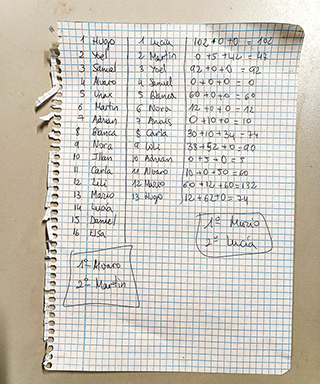 1 Hugo 1 Lucía 102+0+0=102
2 Yael 2 Martin 0+5+42=47
3 Samuel 3 Yael 92+0+0=92
4 Alvaro 4 Samuel 0+0+0=0
5 5 Blanca 60+0+0=60
6 Martin 6 Nora 12+0+0=12
7 Adrian 7 0+10+0=10
8 Blanca 8 Carla 30+10+34=74
9 Nora 9 Loli 38+52+0=90
10 Illan 10 Adrian 0+5+0=5
11 Carla 11 Alvaro 10+0+50=60
12 Lili 12 Mario 60+12+60=132
13 Mario 13 Hugo 12+62+0=74
14 Lucía
15 Daniel
16 Elsa
1º Mario
2º Lucía
1º Alvaro
2º Martin